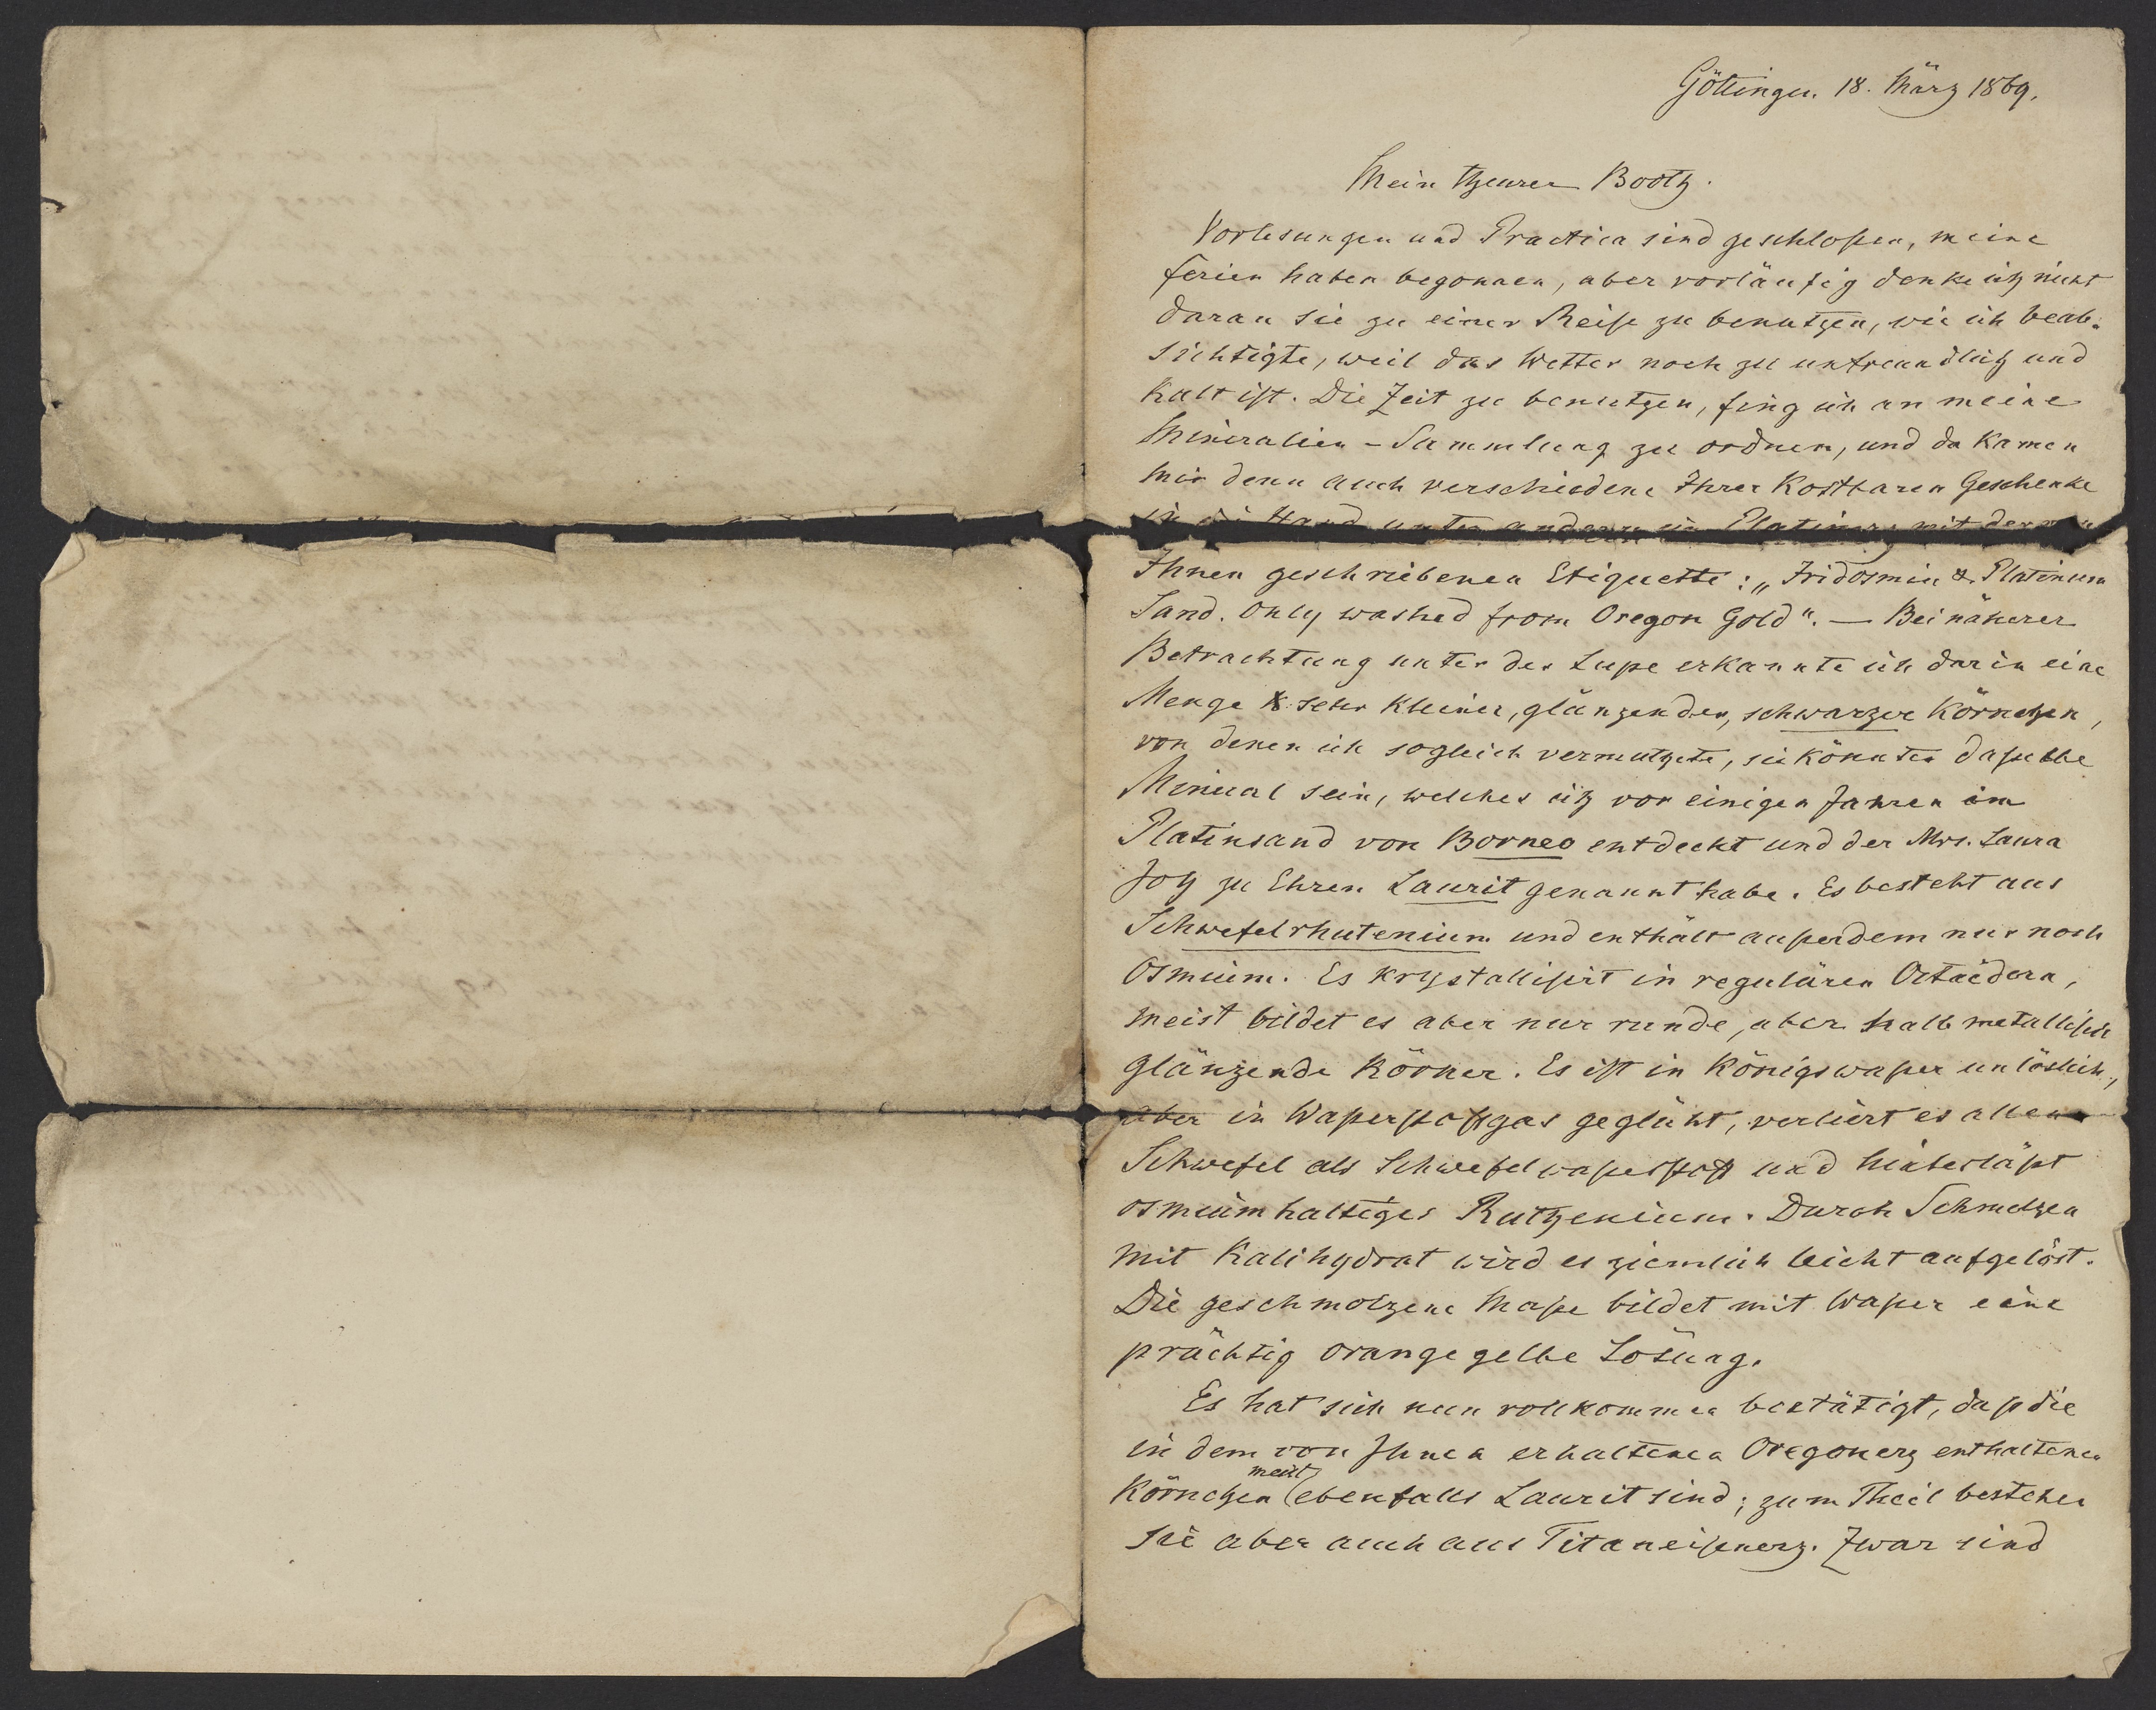 Göttingen. 18. März 1869.
Mein theurer Booth.
Vorlesungen und Practica sind geschloßen, meine
Ferien haben begonnen, aber vorläufig denke ich nicht
daran sie zu einer Reise zu benutzen, wie ich beab-
sichtigte, weil das Wetter noch zu unfreundlich und
kalt ist. Die Zeit zu benutzen, fing ich an meine
Mineralien-Sammlung zu ordnen, und da kamen
mir denn auch verschiedene Ihrer kostbaren Geschenke
in die Hand, unter anderen ein Platinerz mit der von
Ihnen geschriebenen Etiquette: „Iridosmin & Platinum
Sand. Only washed from Oregon Gold". — Bei näherer
Betrachtung unter der Lupe erkannte ich darin eine
Menge sehr kleiner, glänzender, schwarzer Körnchen,
von denen ich sogleich vermuthete, sie könnten daßelbe
Mineral sein, welches ich vor einigen Jahren im
Platinsand von Borneo entdeckt und der Mrs. Laura
Joy zu Ehren Laurit genannt habe. Es besteht aus
Schwefelrhutenium und enthält außerdem nur noch
Osmium. Es krystallisirt in regulären Octaëdern,
meist bildet es aber nur runde, aber halb metallisch
glänzende Körner. Es ist in Königswaßer unlöslich,
aber in Waßerstoffgas geglüht, verliert es allen
Schwefel als Schwefelwaßerstoff und hinterläßt
osmiumhaltiges Ruthenium. Durch Schmelzen
mit Kalihydrat wird es ziemlich leicht aufgelöst.
Die geschmolzene Maße bildet mit Waßer eine
prächtig orangegelbe Lösung.
Es hat sich nun vollkommen bestätigt, daß die
in dem von Ihnen erhaltenen Oregonerz enthaltenen
meist
Körnchen (ebenfalls Laurit sind; zum Theil bestehen
sie aber auch aus Titaneisenerz. Zwar sind